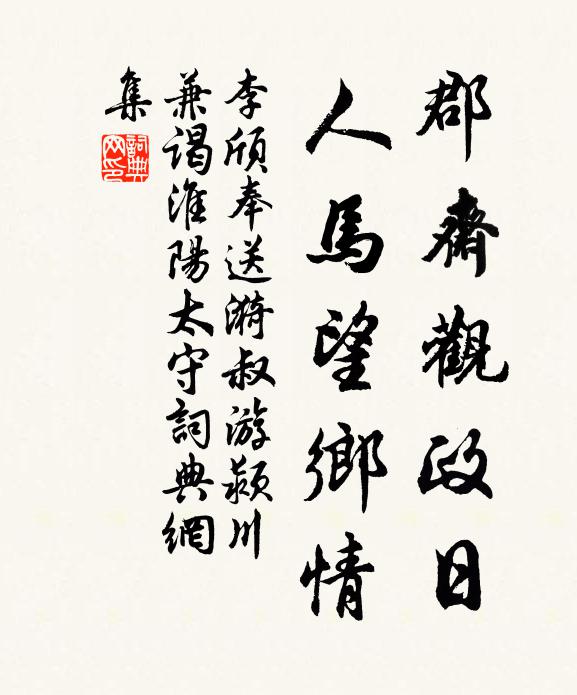 郡齋觀政日
人馬望鄉情
李頎奉送漪叔游潁川
兼謁淮陽太守詞典網
集
詞典网印